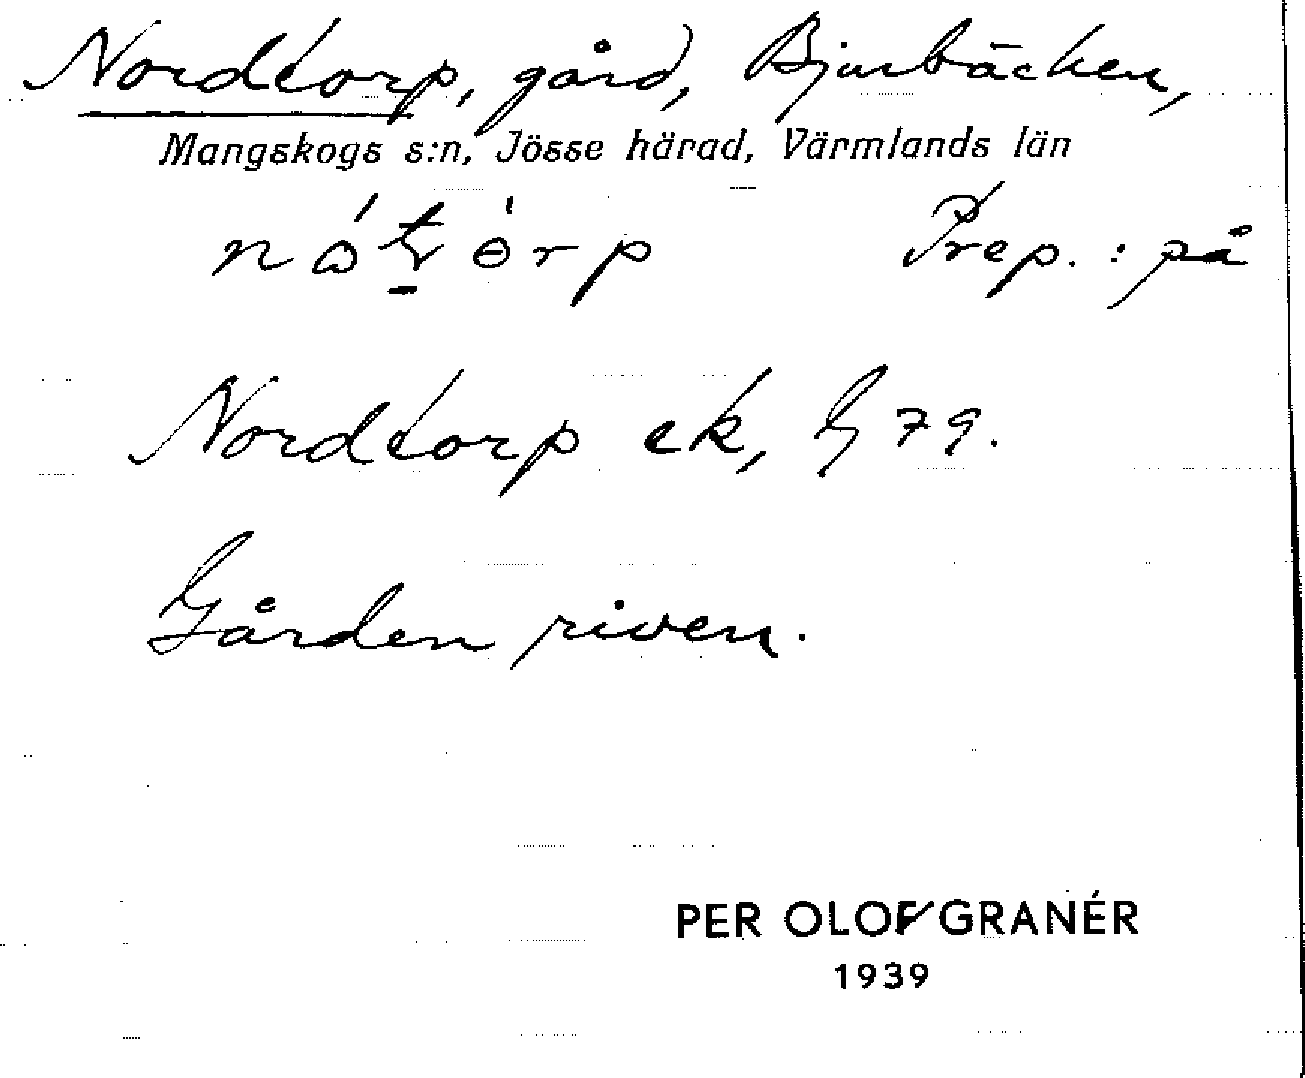 Nordtorp, gård, Bjurbäcken,
Mangskogs s:n, Jösse härad, Värmlands län
Prep. : på
Nordtorp ek, G 79.
Gården riven.
PER OLOF GRANÉR
1939